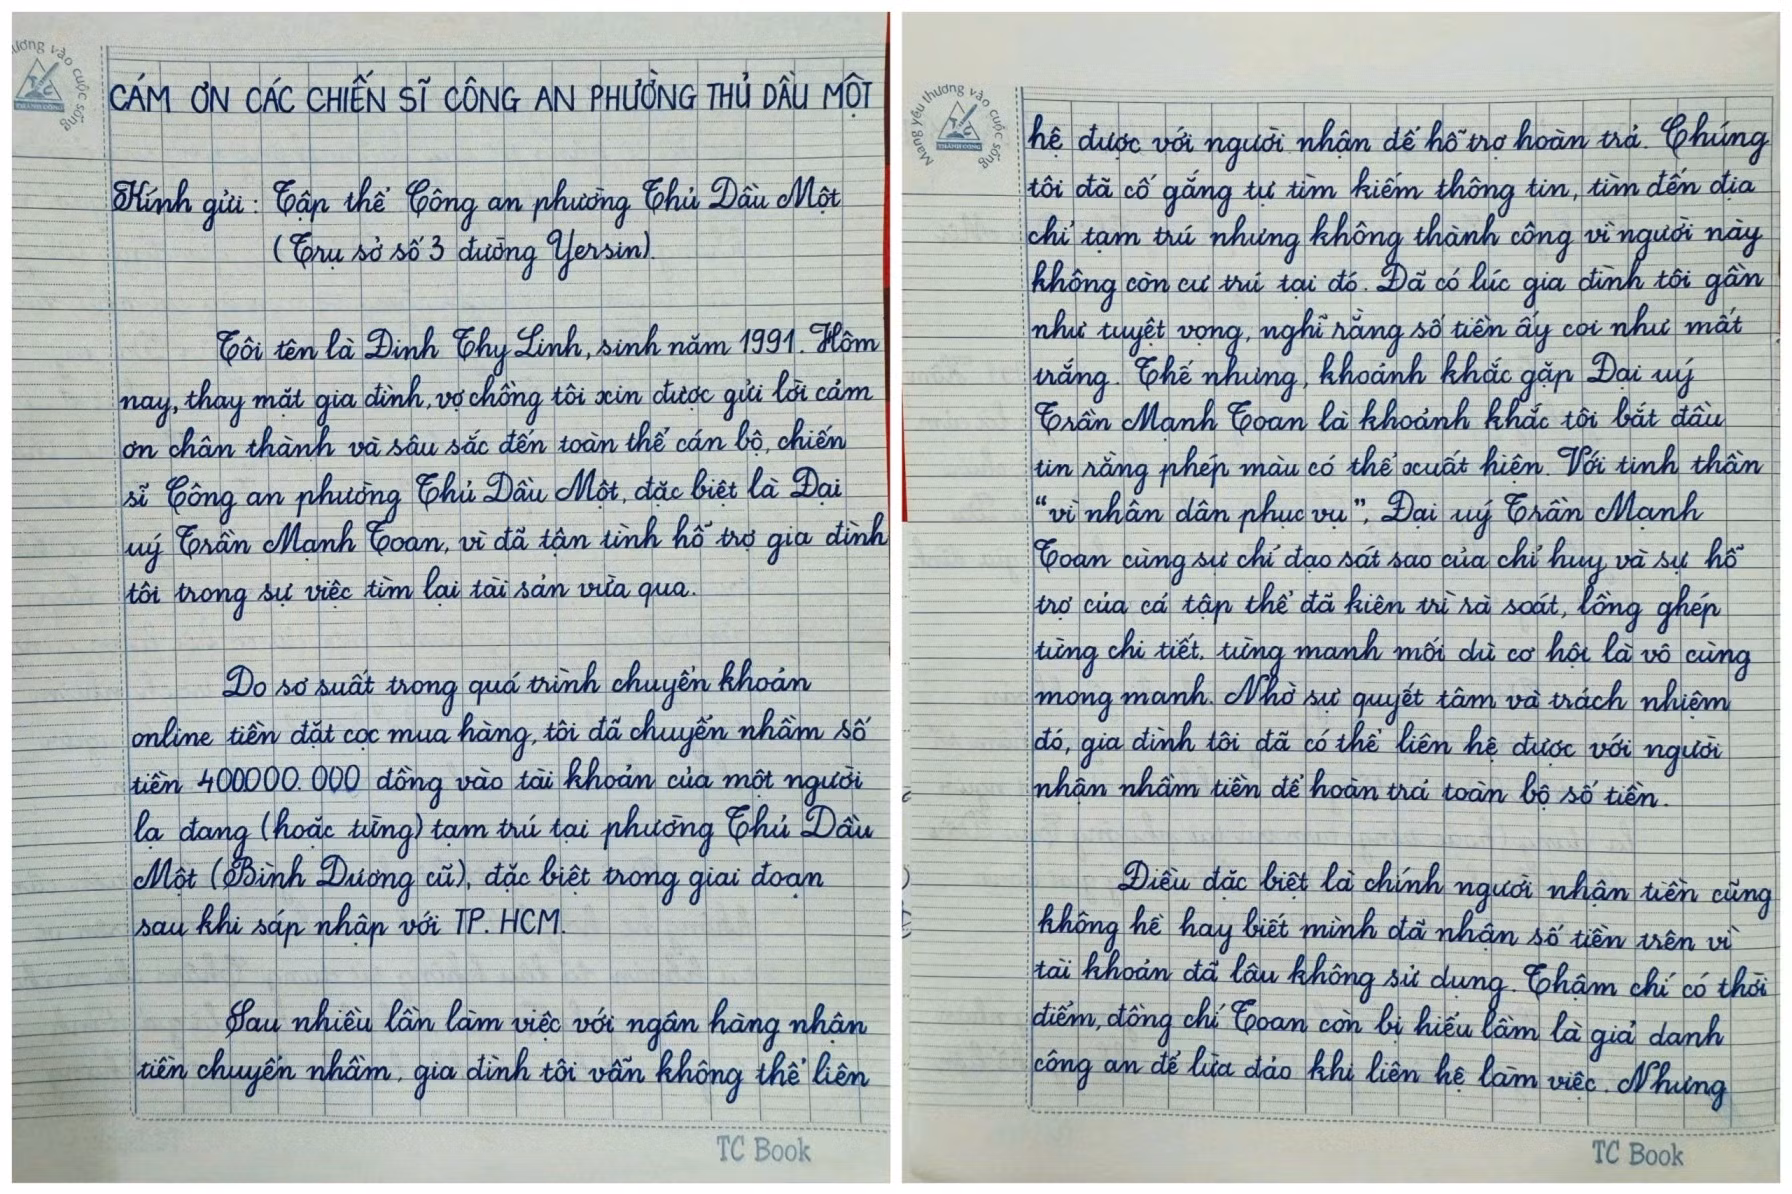 CÁM ƠN CÁC CHIẾN SĨ CÔNG AN PHƯỜNG THỦ DẦU MỘT
Kính gửi: Tập thể Công an phường Thủ Dầu Một
(Trụ sở số 3 đường Yersin).
Tôi tên là Đinh Thy Linh, sinh năm 1991. Hôm
nay, thay mặt gia đình, vợ chồng tôi xin được gửi lời cảm
ơn chân thành và sâu sắc đến toàn thể cán bộ, chiến
sĩ Công an phường Thủ Dầu Một, đặc biệt là Đại
uý Trần Mạnh Toan, vì đã tận tình hỗ trợ gia đình
tôi trong sự việc tìm lại tài sản vừa qua.
Do sơ suất trong quá trình chuyển khoản
online tiền đặt cọc mua hàng, tôi đã chuyển nhầm số
tiền 400000.000 đồng vào tài khoản của một người
lạ đang (hoặc từng) tạm trú tại phường Thủ Dầu
Một (Bình Dương cũ), đặc biệt trong giai đoạn
sau khi sáp nhập với TP. HCM.
Sau nhiều lần làm việc với ngân hàng nhận
tiền chuyển nhầm, gia đình tôi vẫn không thể liên
TC Book
Mang yêu thương vào cuộc sống
THÀNH CÔNG
hệ được với người nhận để hỗ trợ hoàn trả. Chúng
tôi đã cố gắng tự tìm kiếm thông tin, tìm đến địa
chỉ tạm trú nhưng không thành công vì người này
không còn cư trú tại đó. Đã có lúc gia đình tôi gần
như tuyệt vọng, nghĩ rằng số tiền ấy coi như mất
trắng. Thế nhưng, khoảnh khắc gặp Đại uý
Trần Mạnh Toan là khoảnh khắc tôi bắt đầu
tin rằng phép màu có thể xuất hiện. Với tinh thần
“vì nhân dân phục vụ”, Đại uý Trần Mạnh
Toan cùng sự chỉ đạo sát sao của chỉ huy và sự hỗ
trợ của cả tập thể đã kiên trì rà soát, lồng ghép
từng chi tiết, từng manh mối dù cơ hội là vô cùng
mong manh. Nhờ sự quyết tâm và trách nhiệm
đó, gia đình tôi đã có thể liên hệ được với người
nhận nhầm tiền để hoàn trả toàn bộ số tiền.
Điều đặc biệt là chính người nhận tiền cũng
không hề hay biết mình đã nhận số tiền trên vì
tài khoản đã lâu không sử dụng. Thậm chí có thời
điểm, đồng chí Toan còn bị hiểu lầm là giả danh
công an để lừa đảo khi liên hệ làm việc. Nhưng
TC Book